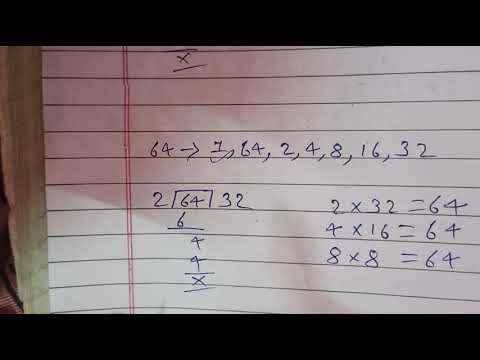 x
64 → 1, 64, 2, 4, 8, 16, 32
2 64 32
6
4
4
x
2 × 32 = 64
4 × 16 = 64
8 × 8 = 64